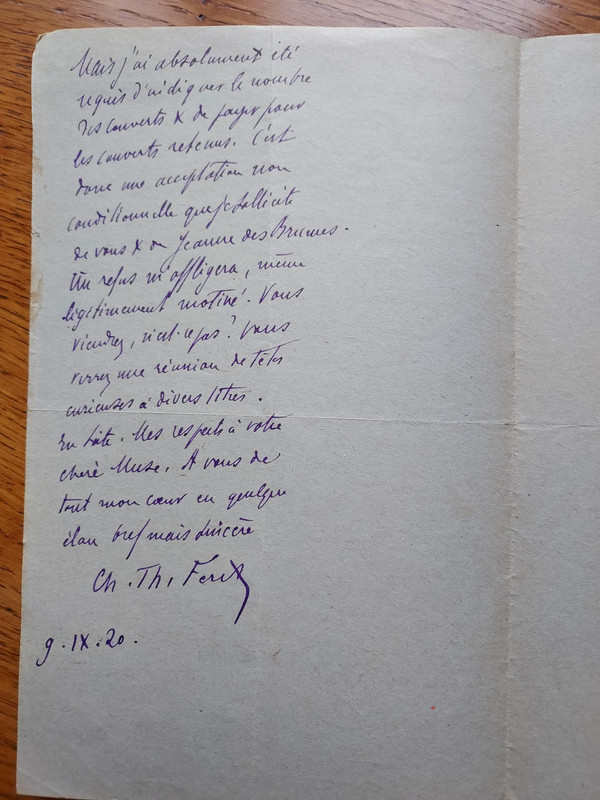 Mais j'ai absolument été
requis d'indiquer le nombre
des couverts & de payer pour
les couverts retenus. C'est
donc une acceptation non
conditionnelle que je sollicite
de vous & de Jeanne des Brumes.
Un refus m'affligera, même
légitimement motivé. Vous
viendrez, n'est-ce pas? Vous
verrez une réunion de têtes
curieuses à divers titres.
En hâte. Mes respects à votre
chère Muse. A vous de
tout mon cœur en quelque
élan bref mais sincère
Ch. Th. Feret
9.IX.20.